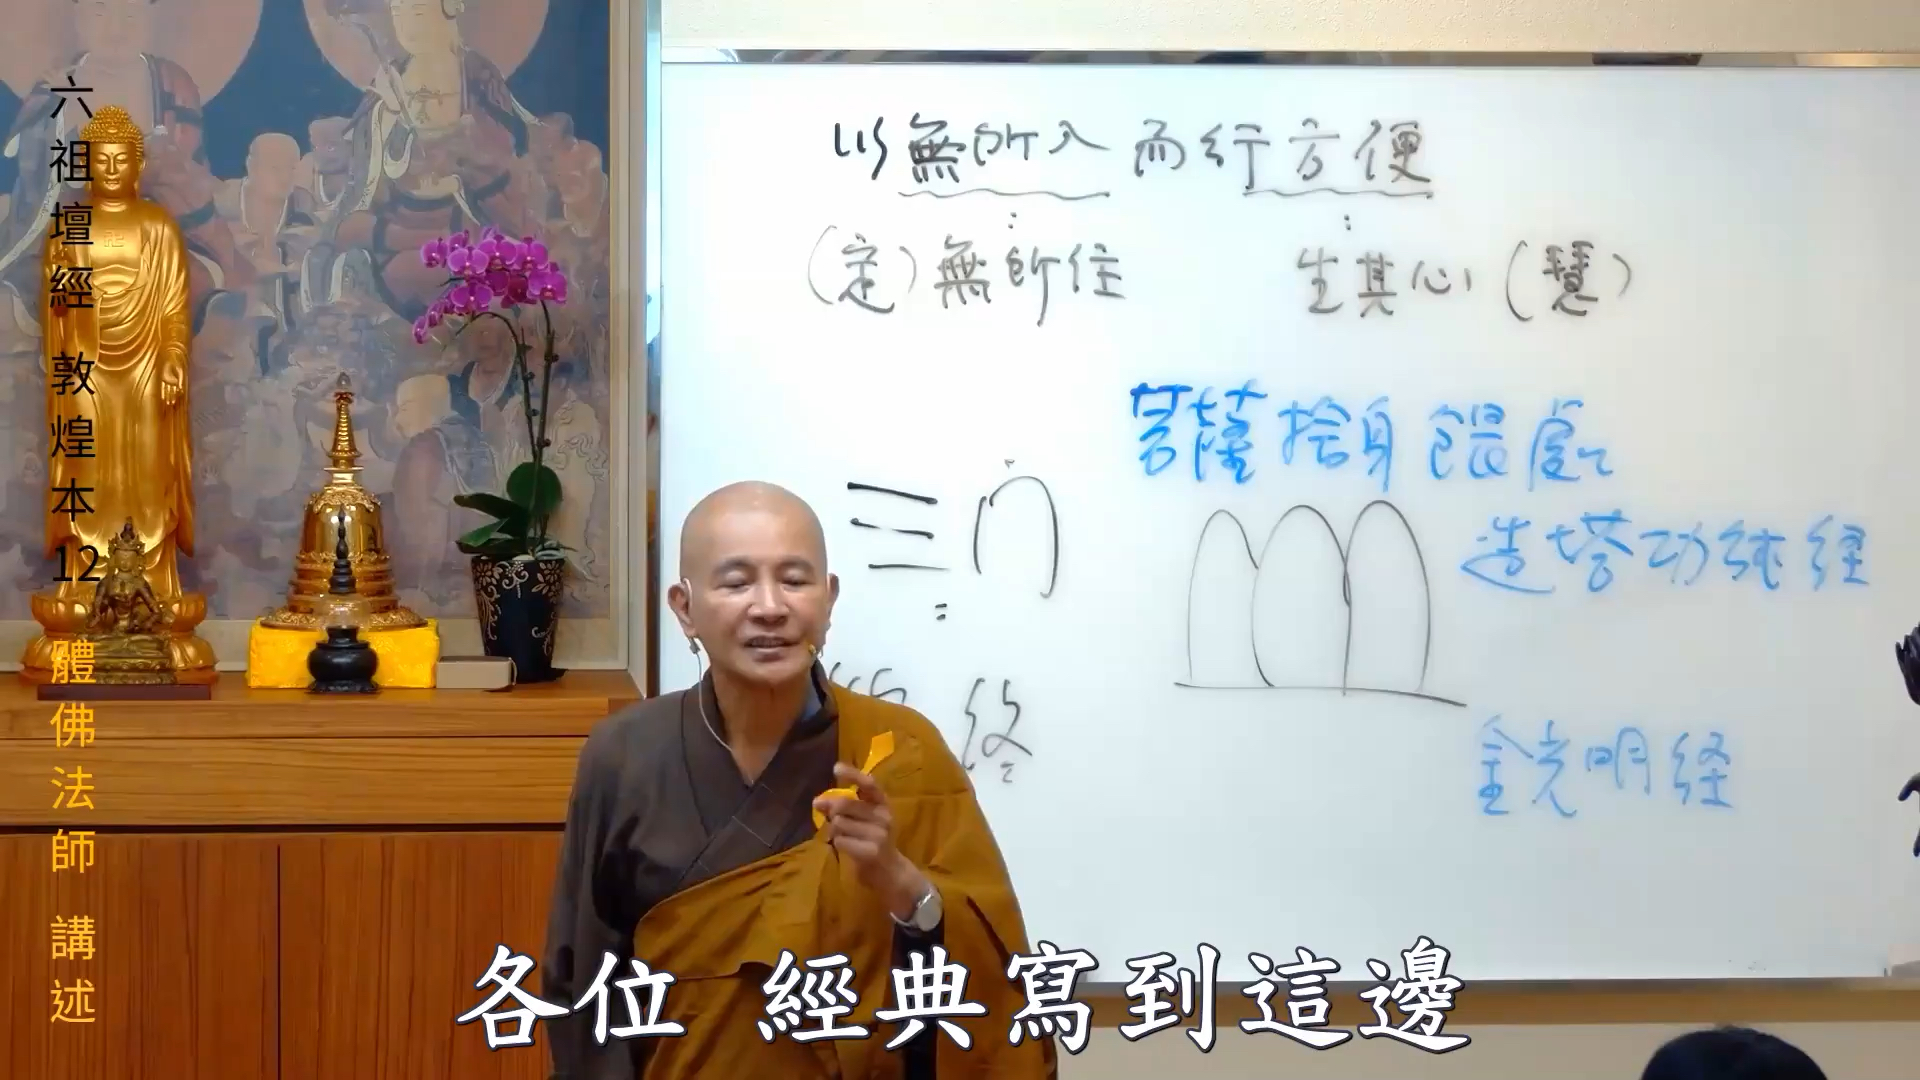 六祖壇經 敦煌本 12 體佛法師 講述
以無所入而行方便
(定)無所住 生其心(慧)
菩薩捨身餵處
造塔功德經
終
金光明経
各位 經典寫到這邊